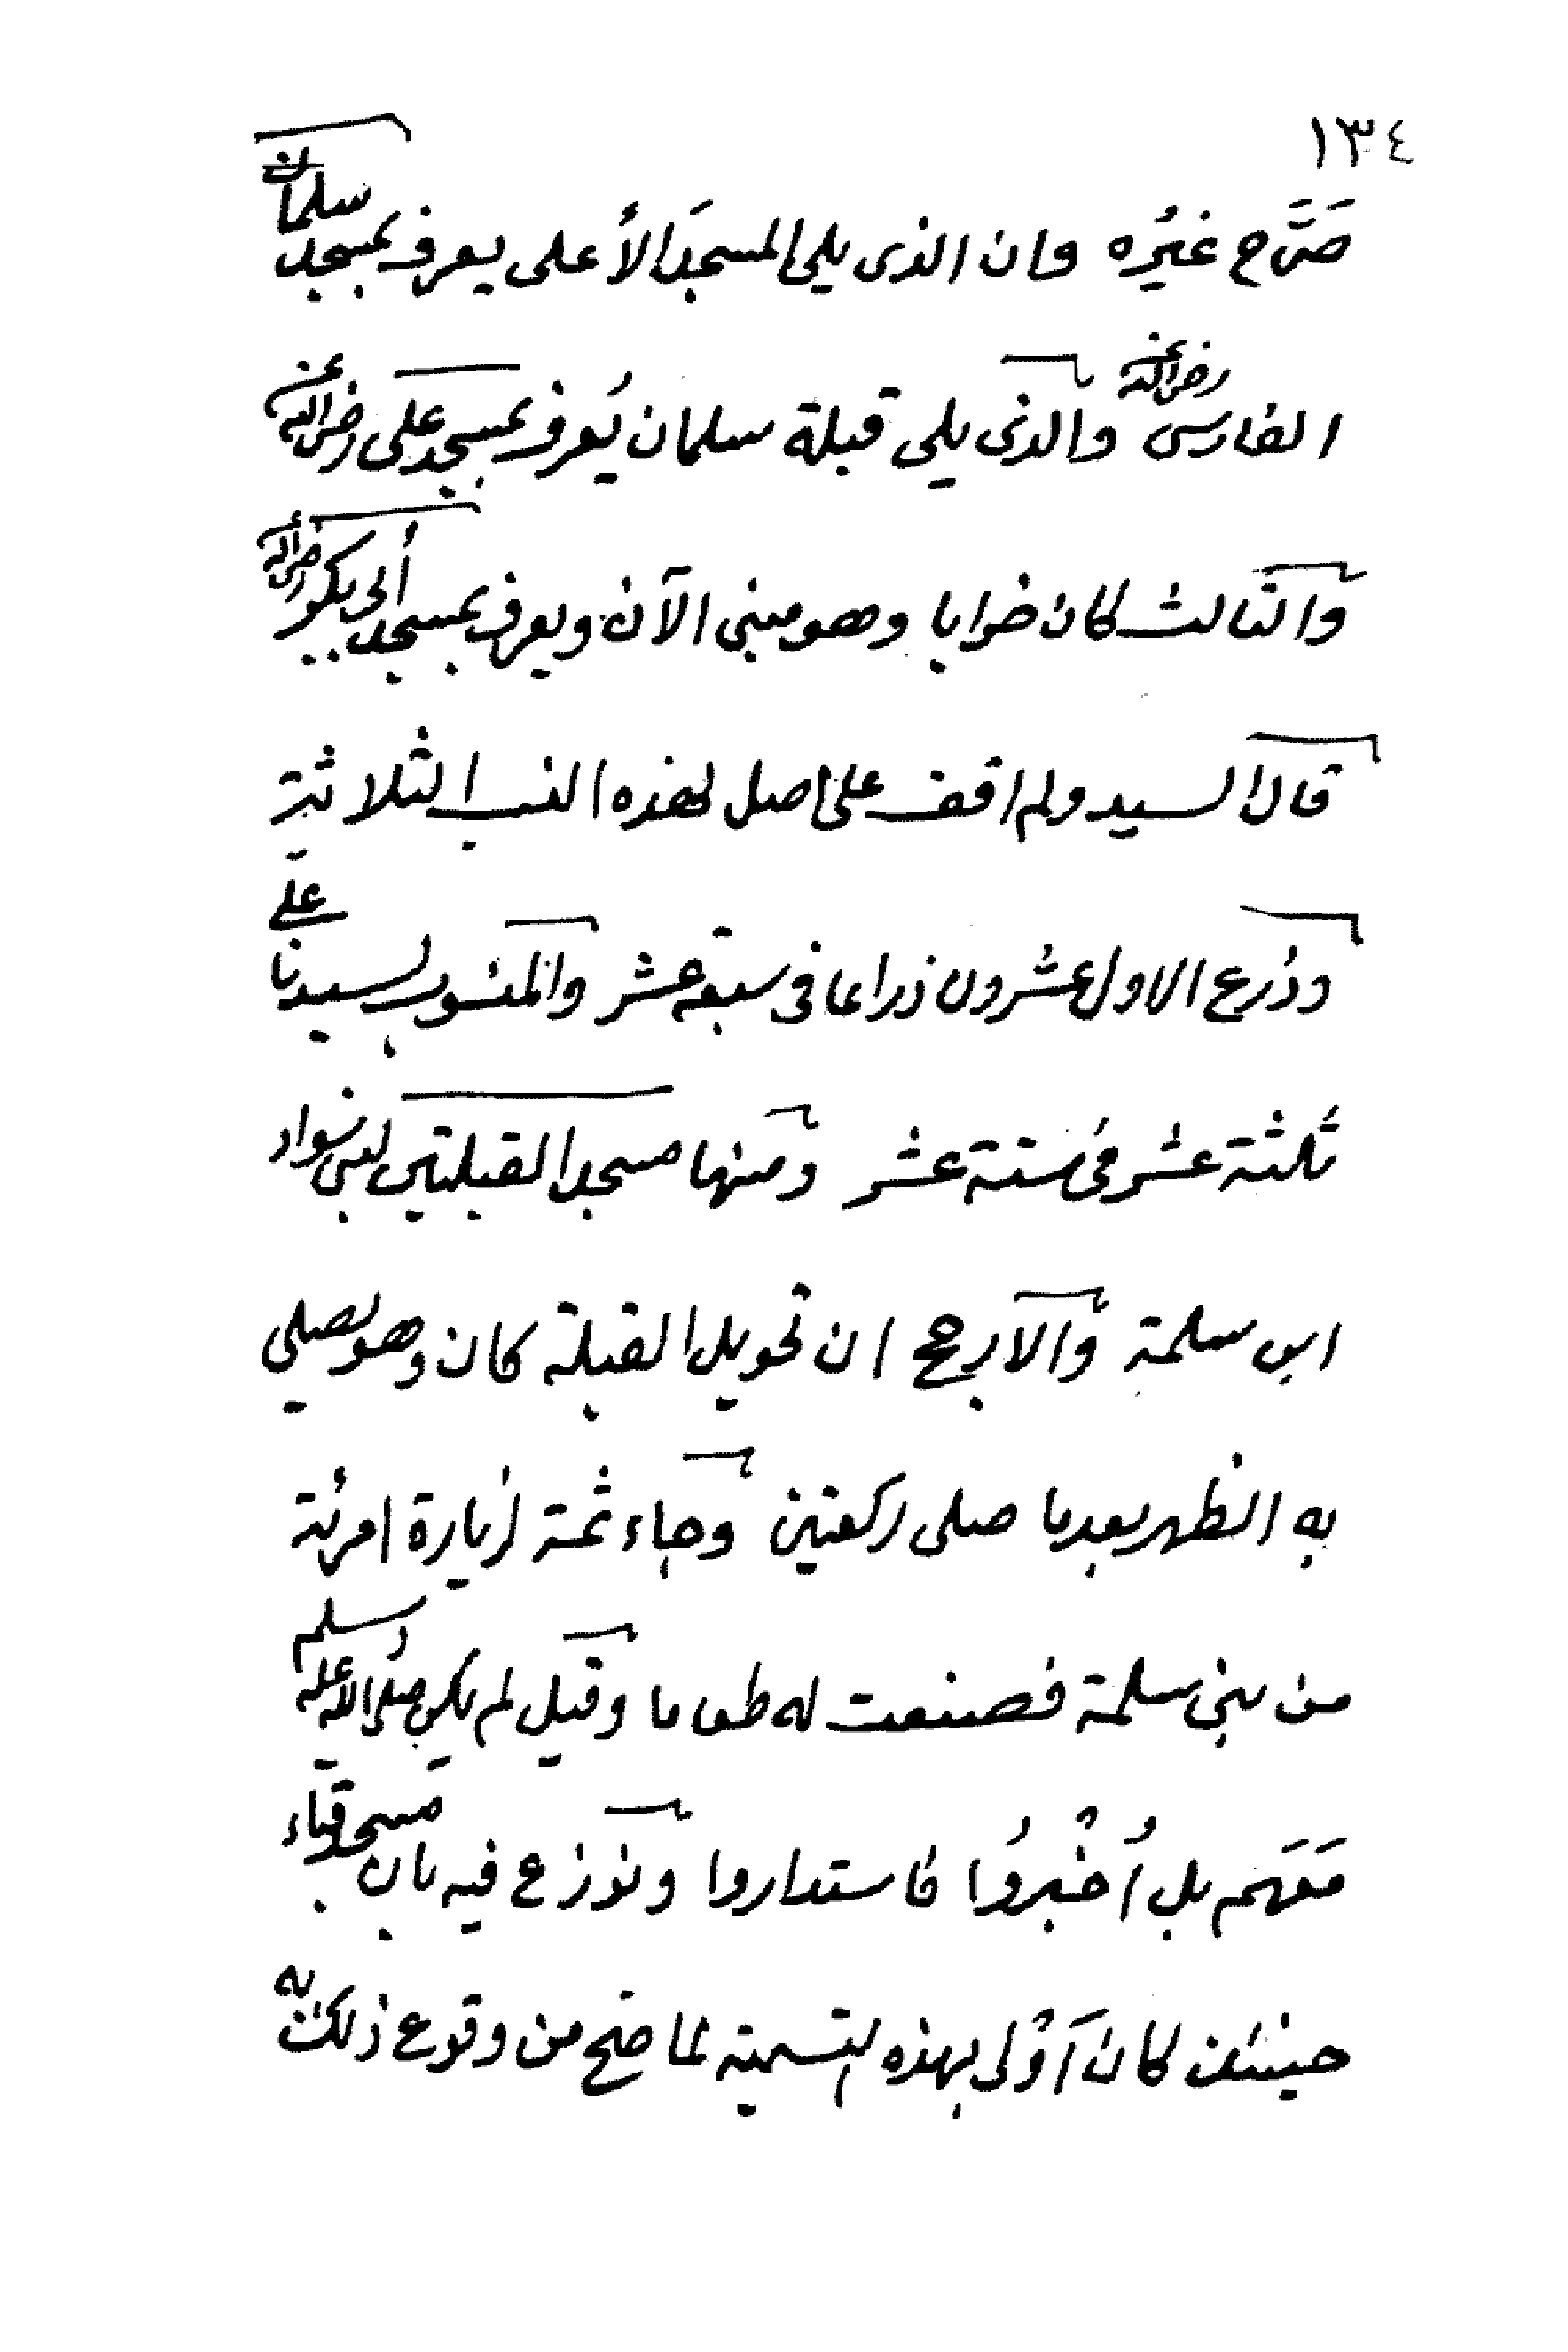 ١٣٤
صَرَّح غيرُه وان الذى يلى المسجدَ الأعلى يعرف بمسجد سلمان
الفارسى رضى الله عنه والذى يلى قبلة سلمان يُعرف بمسجد على رضى الله عنه
والثالث كان خرابا وهو مبنى الآن ويعرف بمسجد أبى بكر رضى الله
قال السيد ولم اقف على اصل لهذه النسب الثلاثة
وذرع الاول عشرون ذراعا فى سبعة عشر والمنسوب لسيدنا على
ثلثة عشر فى ستة عشر ومنها مسجد القبلتين لبنى سواد
ابن سلمة والارجح ان تحويل القبلة كان وهو يصلى
به الظهر بعد ما صلى ركعتين وجاء ثمة لزيارة امرئة
من بنى سلمة فصنعت له طعاما وقيل لم يكن صلى الله عليه وسلم
مَعَهم بل أُخْبِرُوا فاستداروا ونوزع فيه بان مسجد قباء
حينئذ كان أَوْلى بهذه التسمية لما صح من وقوع ذلك به